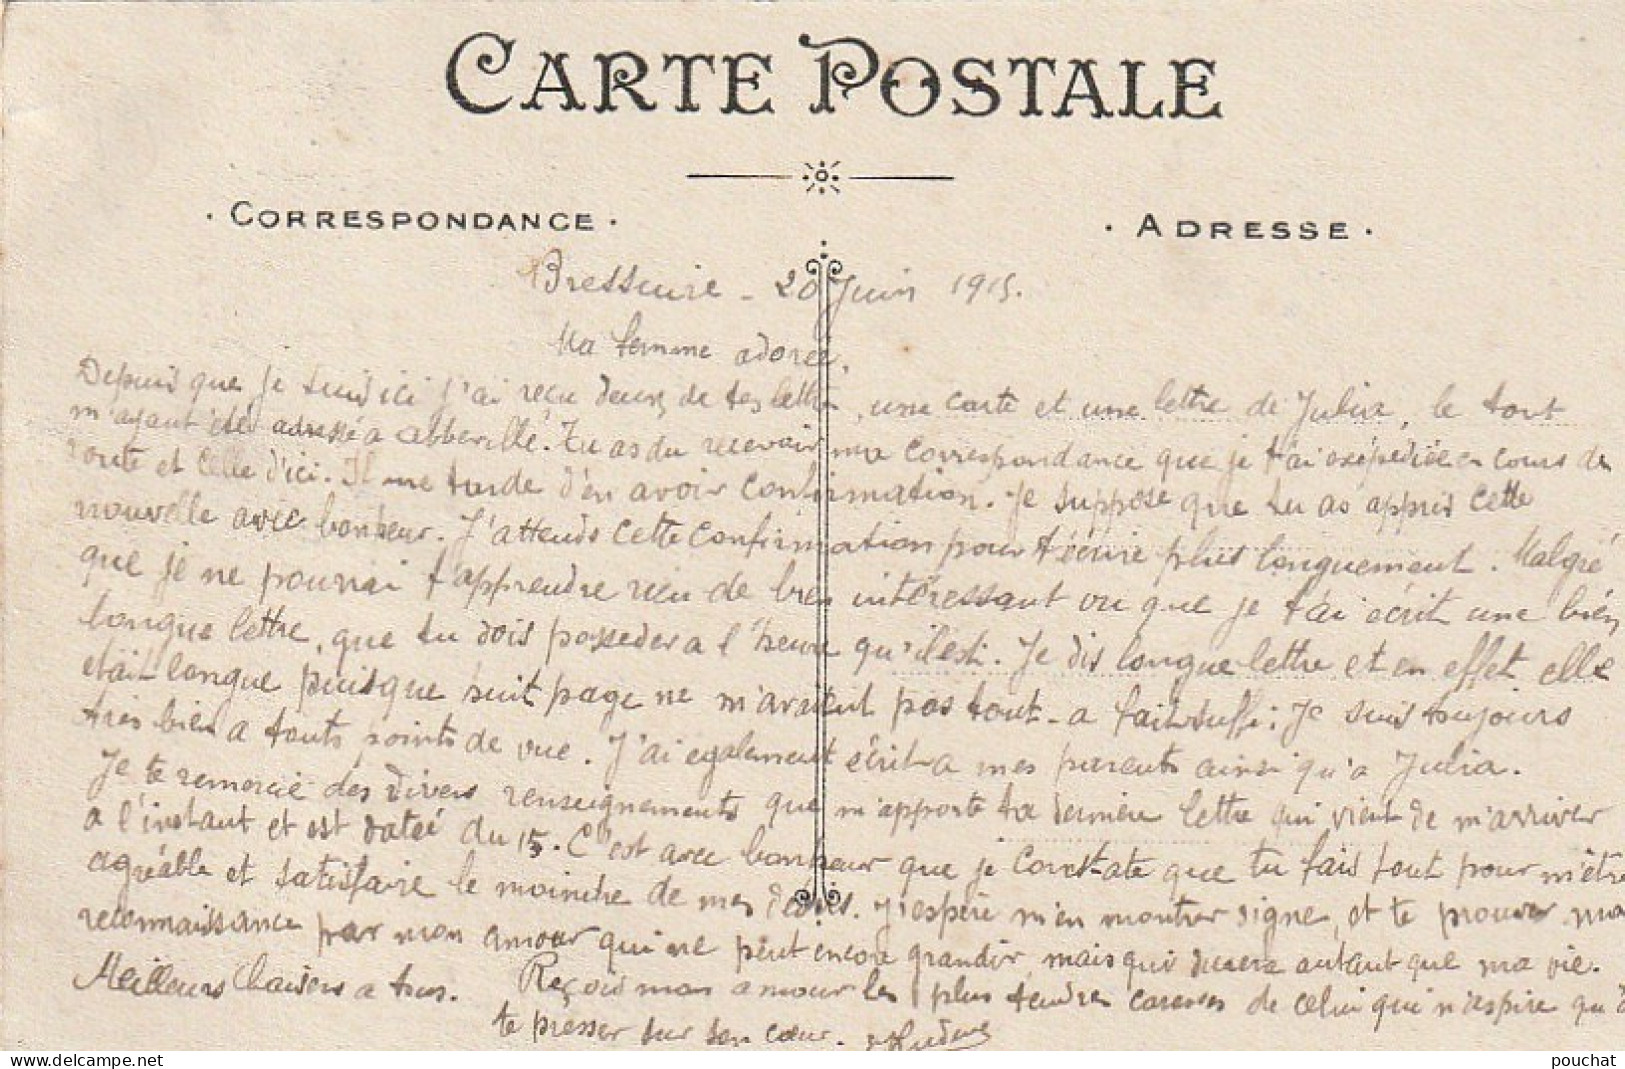 CARTE POSTALE
· CORRESPONDANCE ·
· ADRESSE ·
Bressuire - 20 Juin 1915.
Ma femme adorée,
Depuis que je suis ici j'ai reçu deux de tes lettres, une carte et une lettre de Julia, le tout
m'ayant été adressé a abbeville. Tu as du recevoir ma correspondance que je t'ai expédiée en cours de
route et celle d'ici. Il me tarde d'en avoir confirmation. Je suppose que tu as appris cette
nouvelle avec bonheur. J'attends cette confirmation pour t'écrire plus longuement. Malgré
que je ne pourrai t'apprendre rien de bien intéressant vu que je t'ai écrit une bien
longue lettre, que tu dois posseder a l'heure qu'il est. Je dis longue lettre et en effet elle
était longue puisque huit page ne m'avaient pas tout-a fait suffi; Je suis toujours
très bien a touts points de vue. J'ai egalement écrit a mes parents ainsi qu'a Julia.
Je te remercie des divers renseignements que m'apporte ta dernière lettre qui vient de m'arriver
a l'instant et est dateé du 15. C'est avec bonheur que je constate que tu fais tout pour m'être
agréable et satisfaire le moindre de mes désirs. J'espère m'en montrer digne, et te prouver ma
reconnaissance par mon amour qui ne peut encore grandir, mais qui durera autant que ma vie.
Meilleurs baisers a tous. Reçois mon amour les plus tendres caresses de celui qui n'aspire qu'a
te presser sur son cœur.
pouchat